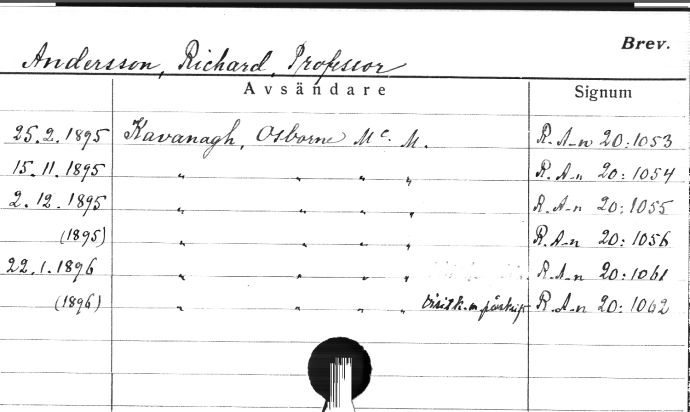 Brev.
Andersson, Richard, Professor
Avsändare Signum
25.2.1895 Kavanagh, Osborne Mc. M. R. A-n 20:1053
15.11.1895 " " " " R. A-n 20:1054
2.12.1895 " " " " R. A-n 20:1055
(1895) " " " " R. A-n 20:1056
22.1.1896 " " " " R. A-n 20:1061
(1896) " " " " visitk. m. påskrift R. A-n 20:1062